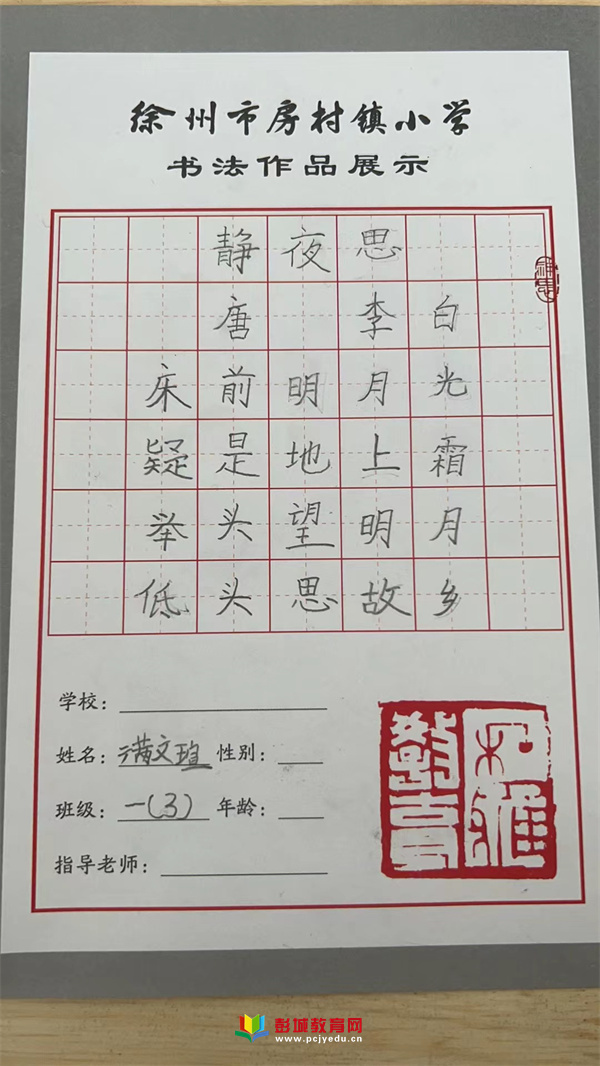 徐州市房村镇小学
书法作品展示
静夜思
唐 李白
床前明月光
疑是地上霜
举头望明月
低头思故乡
学校：
姓名：满文瑄 性别：
班级：一(3) 年龄：
指导老师：
彭城教育网
www.pcjyedu.cn